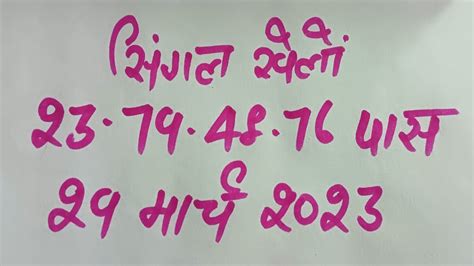 सिंगल खेलों
23.79.48.76 पास
29 मार्च 2023